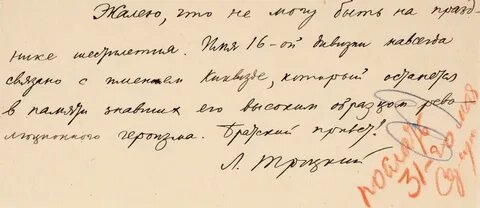 Жалею, что не могу быть на празд-
нике шестилетия. Имя 16-ой дивизии навсегда
связано с именем Киквидзе, который останется
в памяти знавших его высоким образцом рево-
люционного героизма. Братский привет!
Л. Троцкий
послать
31-го мая